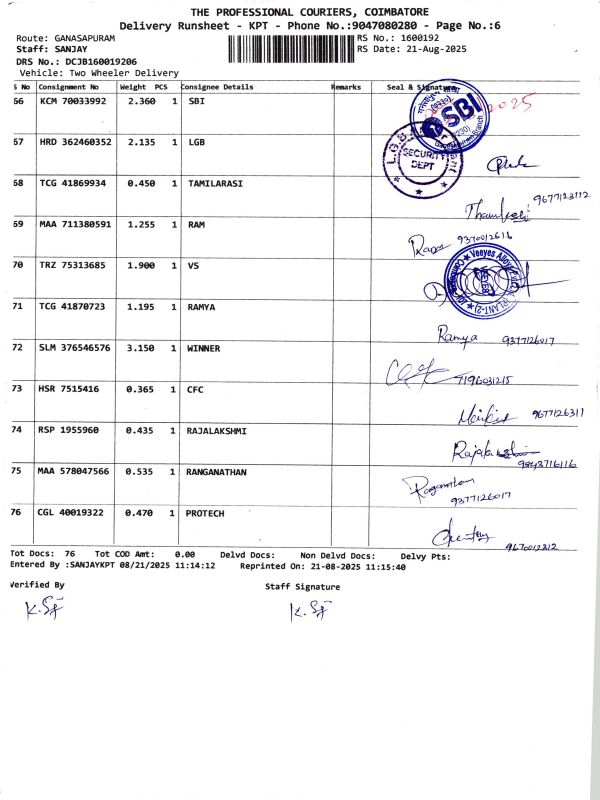 THE PROFESSIONAL COURIERS, COIMBATORE
Delivery Runsheet - KPT - Phone No.:9047080280 - Page No.:6
Route: GANASAPURAM
RS No.: 1600192
Staff: SANJAY
RS Date: 21-Aug-2025
DRS No.: DCJB160019206
Vehicle: Two Wheeler Delivery
S No Consignment No Weight PCS Consignee Details Remarks Seal & Signature
66 KCM 70033992 2.360 1 SBI
SBI
2025
67 HRD 362460352 2.135 1 LGB
SECURITY
DEPT
68 TCG 41869934 0.450 1 TAMILARASI
9677123112
69 MAA 711380591 1.255 1 RAM
9370012616
70 TRZ 75313685 1.900 1 VS
71 TCG 41870723 1.195 1 RAMYA
Ramya 9377126017
72 SLM 376546576 3.150 1 WINNER
7196031215
73 HSR 7515416 0.365 1 CFC
9677126311
74 RSP 1955960 0.435 1 RAJALAKSHMI
75 MAA 578047566 0.535 1 RANGANATHAN
Ranganathan
9377126017
76 CGL 40019322 0.470 1 PROTECH
9670012312
Tot Docs: 76 Tot COD Amt: 0.00 Delvd Docs: Non Delvd Docs: Delvy Pts:
Entered By :SANJAYKPT 08/21/2025 11:14:12 Reprinted On: 21-08-2025 11:15:40
Verified By Staff Signature